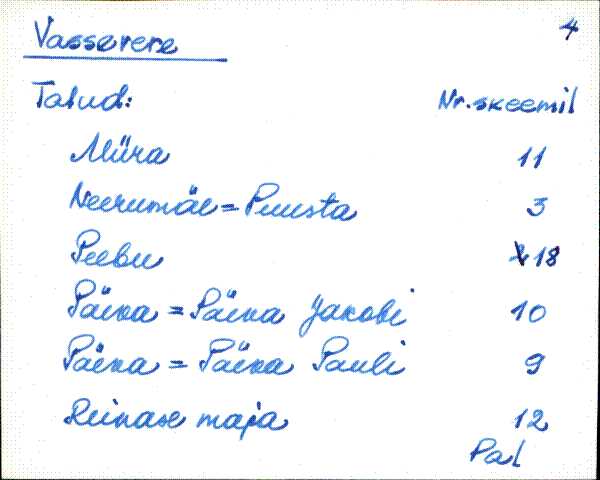 Vasserere 4
Talud: Nr. skeemil
Müra 11
Neerumäe = Puusta 3
Peebu 18
Päiva = Päiva Jakobi 10
Päiva = Päiva Pauli 9
Reinase maja 12
Pal